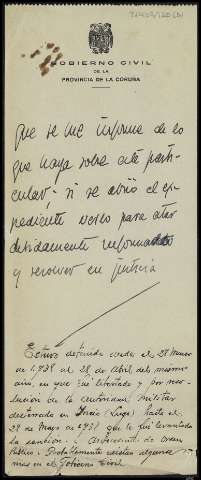 GOBIERNO CIVIL
DE LA
PROVINCIA DE LA CORUÑA
Que se me informe de lo
que haya sobre este parti-
cular; si se abrió el ex-
pediente veslo para estar
debidamente informado
y resolver en justicia
Estuvo detenida desde el 28 Marzo
de 1.938 al 28 de Abril del mismo
año, en que fué libertada y por reso-
lución de la autoridad militar
desterrada en (Lugo) hasta el
28 de Mayo de 1931 que le fué levantada
la sanción. de Orden
Público. Probablemente existan algunos
mas en el Gobierno Civil